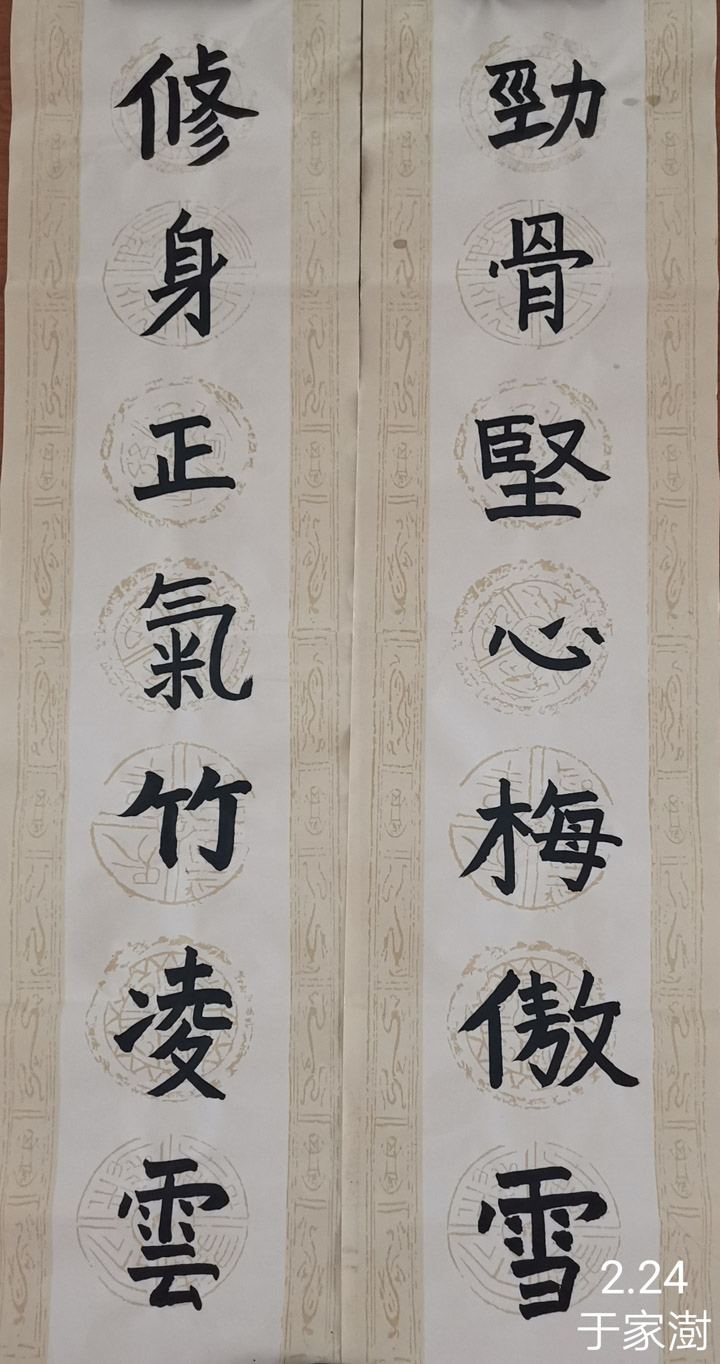 勁骨堅心梅傲雪
修身正氣竹凌雲
2.24
于家澍